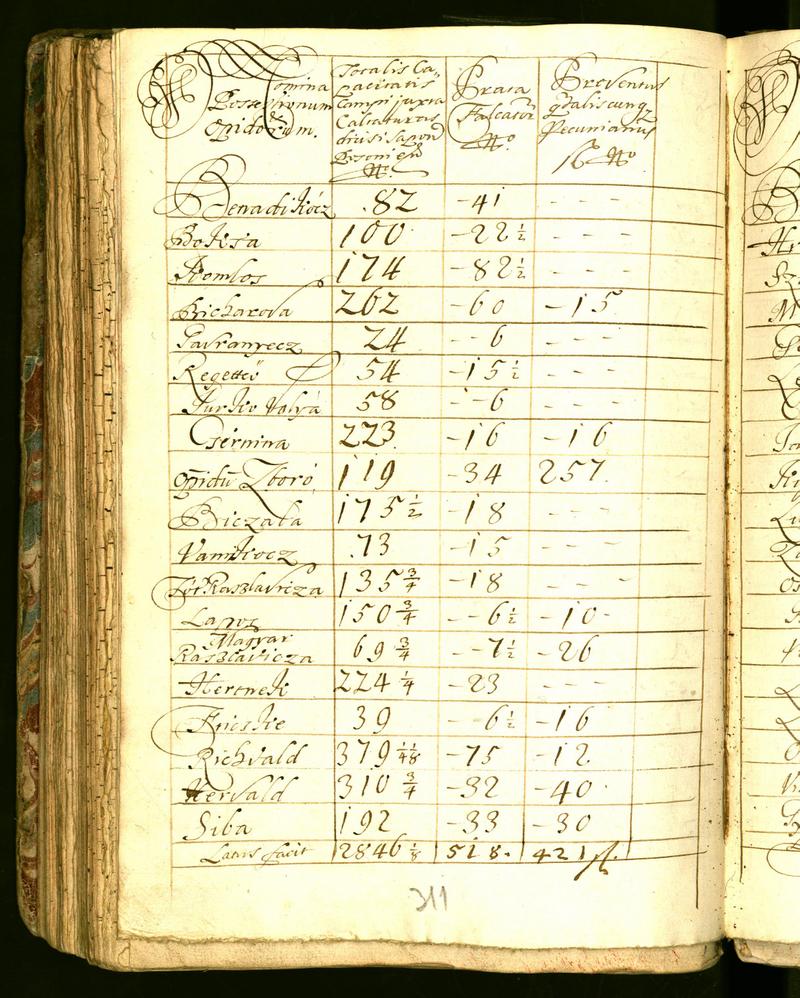 Nomina Possessionum & Opidorum.
Totalis Capacitatis Campi juxta Calcaturas divisi Sapon Posonien Nro.
Prata Falcator Nro.
Proventus qdaliscunqz Pecuniarius fl. Nro
Benadikocz .82 -41 - - -
Boksa 100 -22 1/2 - - -
Komlos 174 -82 1/2 - - -
Richarova 262 -60 -15
Gavranyecz 24 --6 - - -
Regettő 54 -15 1/2 - - -
Kurko Valyá 58 --6 - - -
Csérnina 223 -16 -16
opidū Zboró 119 -34 257.
Biczaka 175 1/2 -18 - - -
Vanikocz .73 -15 - - -
Tót Raszlavicza 135 3/4 -18 - - -
Lapos 150 3/4 --6 1/2 -10-
Magyar
Raszlavicza 69 3/4 --7 1/2 -26
Hertnek 224 1/4 -23 - - -
Fricske 39 --6 1/2 -16
Richvald 379 1/4 1/8 -75 -12
Hervald 310 3/4 -32 -40
Siba 192 -33 -30
Latus facit 2846 1/8 518. 421 fl.
311